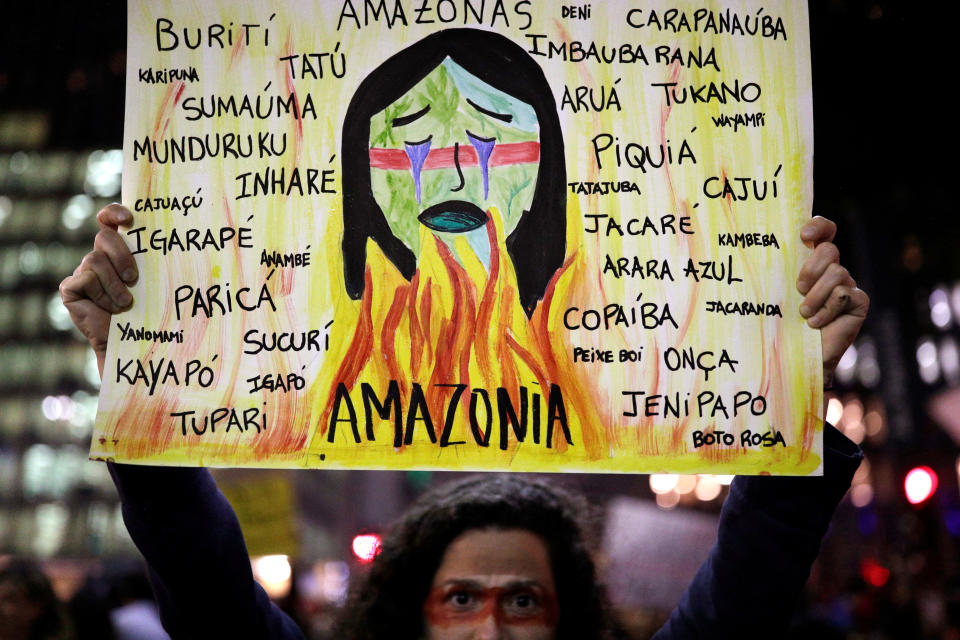 AMAZONAS
BURITÍ
TATÚ
KARIPUNA
SUMAÚMA
MUNDURUKU
INHARÉ
CAJUAÇÚ
IGARAPÉ
ANAMBÉ
PARICÁ
YANOMAMI
SUCURÍ
KAYAPÓ
IGAPÓ
TUPARI
DENI
CARAPANAÚBA
IMBAUBARANA
ARUÁ
TUKANO
WAYAMPI
PIQUIÁ
TATAJUBA
CAJUÍ
JACARÉ
KAMBEBA
ARARA AZUL
COPAÍBA
JACARANDA
PEIXE BOI
ONÇA
JENIPAPO
BOTO ROSA
AMAZONIA